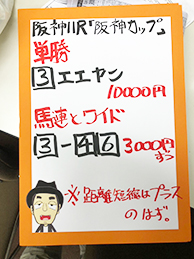 阪神11R「阪神カップ」
単勝
3 エエヤン
10000円
馬連とワイド
3-4 6 3000円
ずつ
※距離短縮はプラス
のはず。